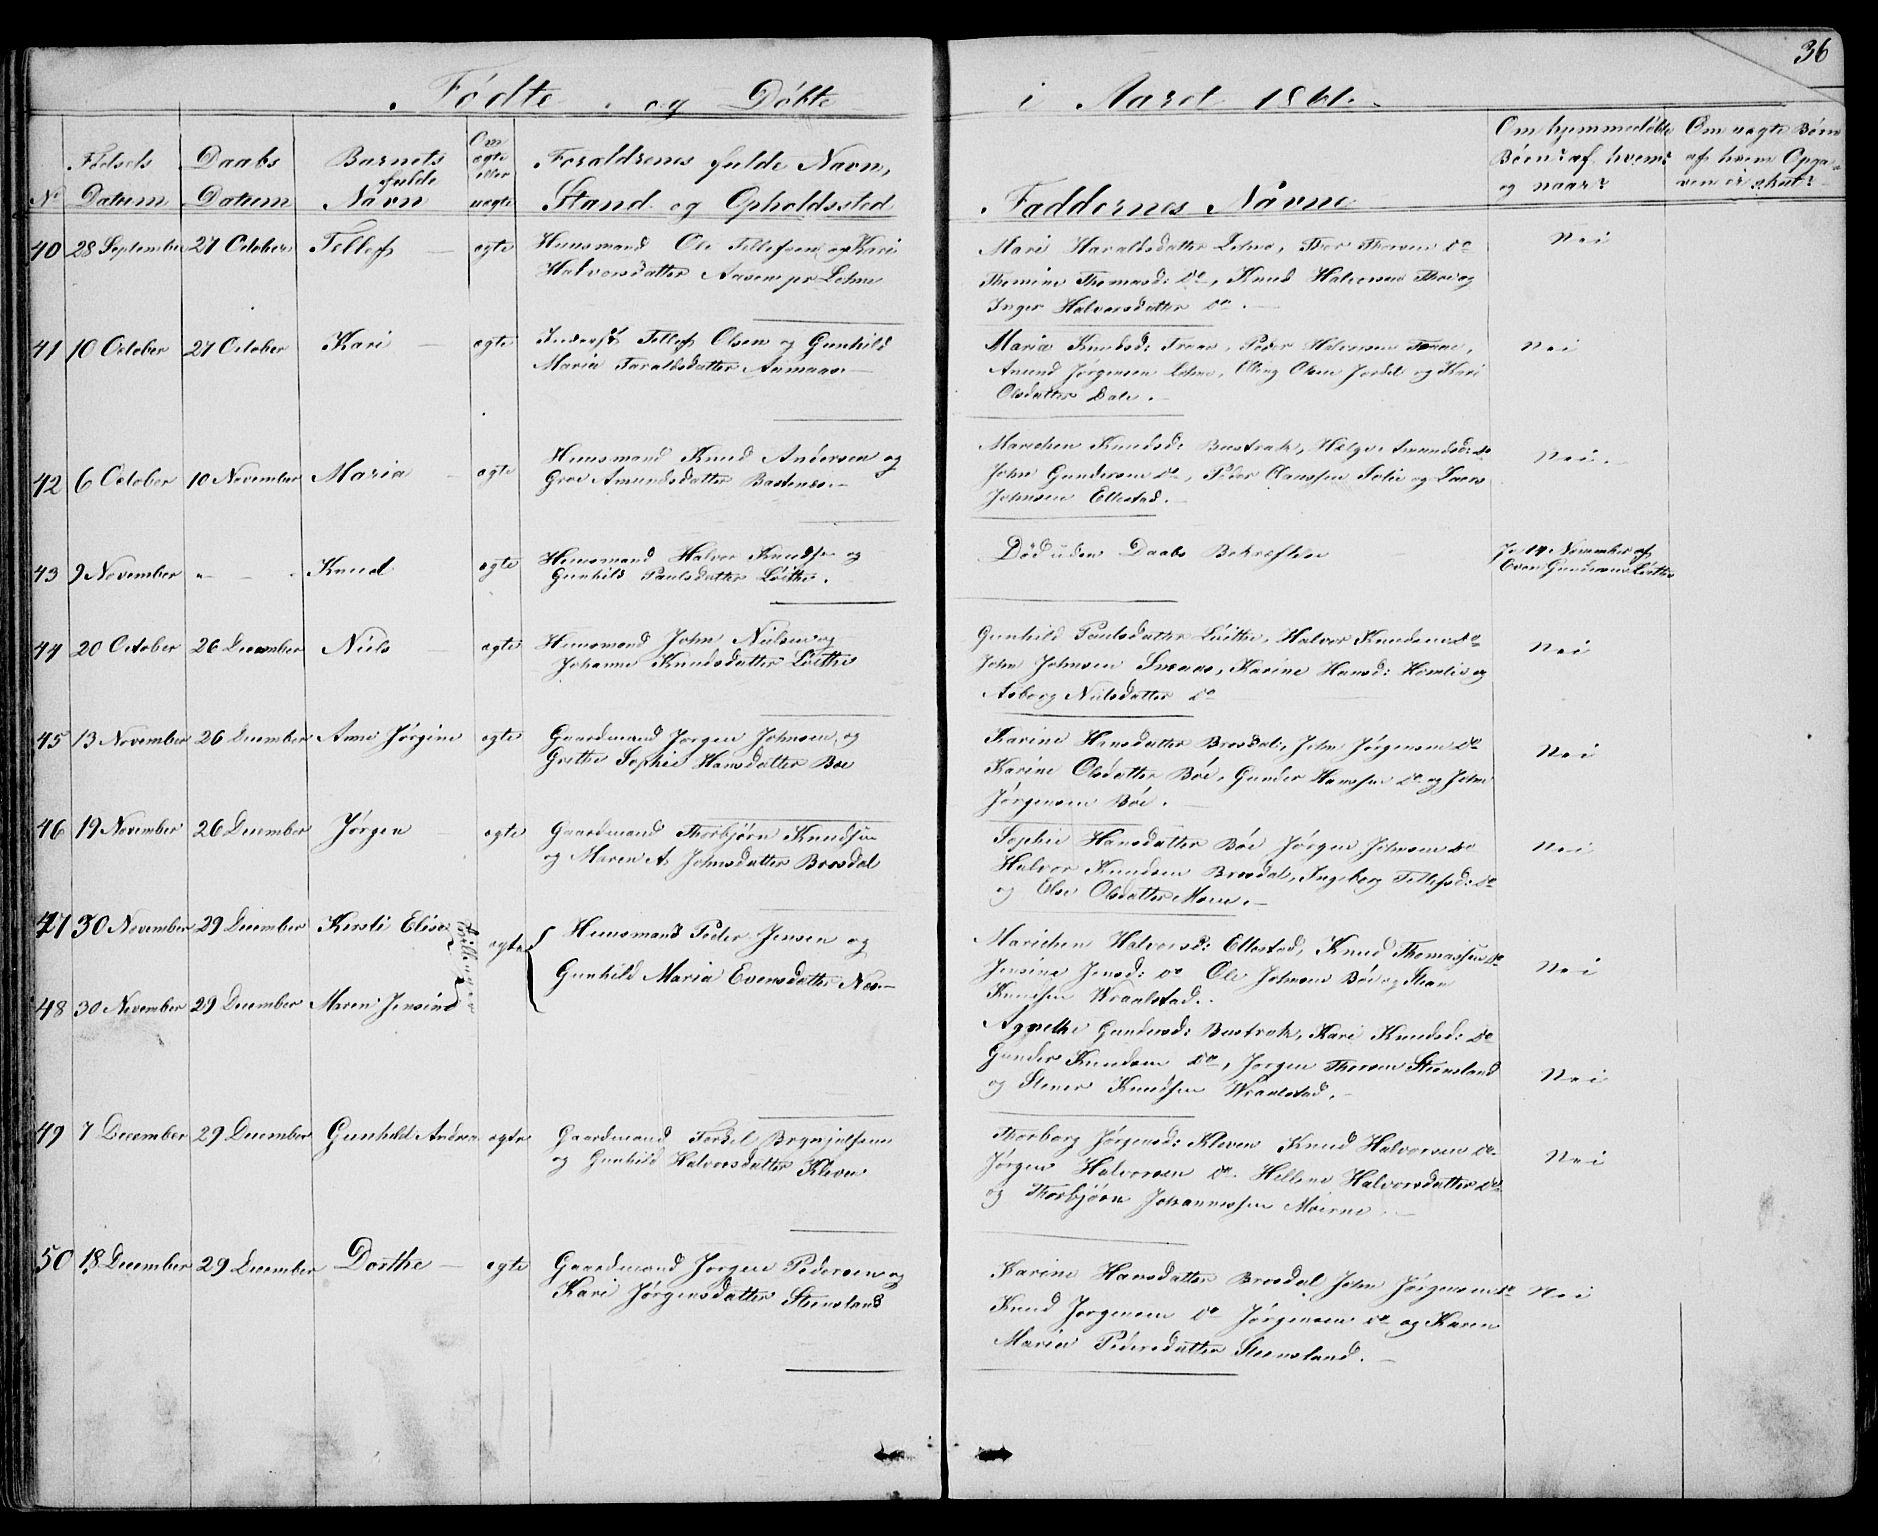 36
Fødte og Døbte i Aaret 1861.
No
Fødsels Datum
Daabs Datum
Barnets fulde Navn
Om ægte eller uægte
Forældrenes fulde Navn, Stand og Opholdssted
Faddernes Navne
Om hjemmedøbte Børn? af hvem? og naar?
Om uægte Børn af hvem Opgaven er skut?
40 28 September 27 October Tellef ægte Huusmand Ole Tellefsen og Kari
Halvorsdatter Aasen pr Lohne
Mari Haraldsdatter Lohne, Thor Thorsen do Nei
Thomine Thomasd: do, Knud Halvorsen Thore og
Inger Halvorsdatter do.
41 10 October 27 October Kari ægte Inderst Tellef Olsen og Gunhild
Maria Taraldsdatter Aamaas
Maria Knudsd: Traae, Peder Halvorsen Traae, Nei
Anund Jørgensen Lohne, Olsen og Kari
Olsdatter Dale.
42 6 October 10 November Maria ægte Huusmand Knud Andersen og
Groe Amundsdatter
Marichen Knudsd: Bustrak, Helge Amundsd: do Nei.
John Gundersen do, Peder Claussen og Lars
Johnsen Ellestad.
43 9 November " - - Knud ægte Huusmand Halvor Knudsen og
Gunhild Paulsdatter Løithe.
Død uden Daabs Bekræftelse
Ja 14 November af
Even Gundersen Løithe
44 20 October 26 December Niels ægte Huusmand John Nielsen og
Johanne Knudsdatter Løithe
Gunhild Paulsdatter Løithe, Halvor Knudsen do Nei
John Johnsen, Karine Hansd: Homlie og
Asborg Nielsdatter do
45 13 November 26 December Anne Jørgine ægte Gaardmand Jørgen Johnsen og
Grethe Sophie Hansdatter Bøe
Karine Hansdatter Brosdal, John Jørgensen do Nei
Karine Olsdatter Bøe, Gunder Hanssen do og John
Jørgensen Bøe.
46 19 November 26 December Jørgen ægte Gaardmand Thorbjørn Knudsen
og Maren A Johnsdatter Brosdal
Sophie Hansdatter Bøe Jørgen Johnsen do Nei
Halvor Knudsen Brosdal, Ingeborg Tellefsd: do
og Else Olsdatter Moen.
47 30 November 29 December Kirsti Elise Tvillinger ægte Huusmand Peder Jensen og
Gunhild Maria Evensdatter Næs
Marichen Halvorsd: Ellestad, Knud Thomassen do Nei
Jensine Jensd: do Ole Johnsen Bøe og Steen
Knudsen Wraalstad.
48 30 November 29 December Maren Jensine
Agnethe Gundersd: Bustrak, Kari Knudsd: do
Gunder Knudsen do, Jørgen Thorsen Steensland Nei
og Stener Knudsen Wraalstad.
49 7 December 29 December Gunhild Andrea ægte Gaardmand Terdel Brynjulsen
og Gunhild Halvorsdatter Kleven
Thorborg Jørgensd: Kleven Knud Halvorsen do Nei
Jørgen Halvorsen do Hellene Halvorsdatter do
og Thorbjørn Johannessen Moerne.
50 18 December 29 December Dorthe ægte Gaardmand Jørgen Pedersen og
Kari Jørgensdatter Steensland
Karine Hansdatter Brosdal, John Jørgensen do Nei
Knud Jørgensen do Jørgensen do og Karen
Maria Pedersdatter Steensland.